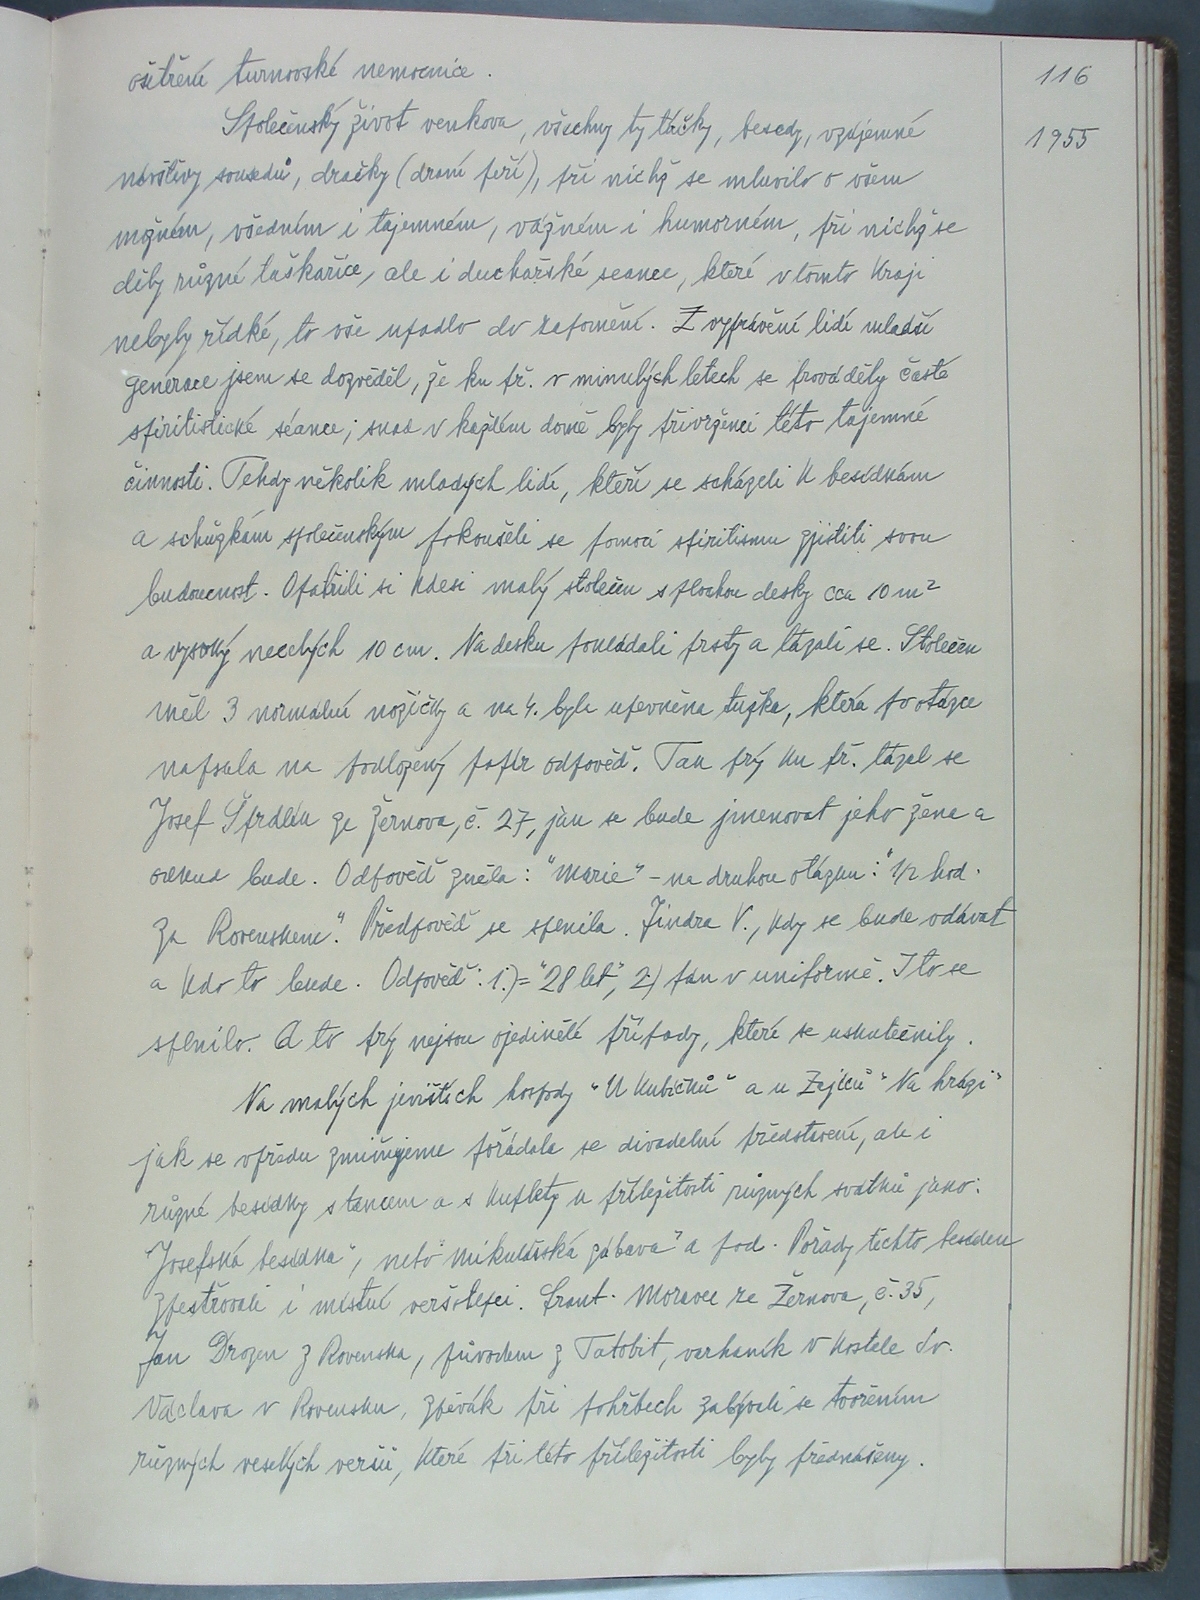 ošetření turnovské nemocnice.
116
Společenský život venkova, všechny ty táčky, besedy, vzájemné
1955
návštěvy sousedů, dračky (draní peří), při nichž se mluvilo o všem
možném, všedním i tajemném, vážném i humorném, při nichž se
děly různé taškařice, ale i duchařské seance, které v tomto kraji
nebyly řídké, to vše upadlo do zapomění. Z vyprávění lidí mladší
generace jsem se dozvěděl, že ku př. v minulých letech se prováděly časté
spiritistické séance; snad v každém domě byly přivrženci této tajemné
činnosti. Tehdy několik mladých lidí, kteří se scházeli k besídkám
a schůzkám společenským pokoušeli se pomocí spiritismu zjistiti svou
budoucnost. Opatřili si kdesi malý stoleček s plochou desky cca 10 m²
a vysoký necelých 10 cm. Na desku pokládali prsty a tázali se. Stoleček
měl 3 normální nožičky a na 4. byla upevněna tužka, která po otázce
napsala na podložený papír odpověď. Tak prý ku př. tázal se
Josef Šprdlík ze Žernova, č. 27, jak se bude jmenovat jeho žena a
odkud bude. Odpověď zněla: "Marie" – na druhou otázku: "1/2 hod.
za Rovenskem". Předpověď se splnila. Jindra V., kdy se bude vdávat
a kdo to bude. Odpověď: 1.)= "28 let", 2.) pán v uniformě. I to se
splnilo. A to prý nejsou ojedinělé případy, které se uskutečnily.
Na malých jevištích hospody "U Kubíčků" a u Zajíců "Na hrázi"
jak se vpředu zmiňujeme pořádala se divadelní představení, ale i
různé besídky s tancem a s kuplety k příležitosti různých svátků jako:
"Josefská besídka", nebo "Mikulášská zábava" a pod. Pořady těchto besídek
zpestřovali i místní veršotepci. Frant. Moravec ze Žernova, č. 35,
Jan Drozen z Rovenska, původem z Tatobit, varhaník v kostele Sv.
Václava v Rovensku, zpěvák při pohřbech zabývali se tvořením
různých veselých veršů, které při této příležitosti byly přednášeny.